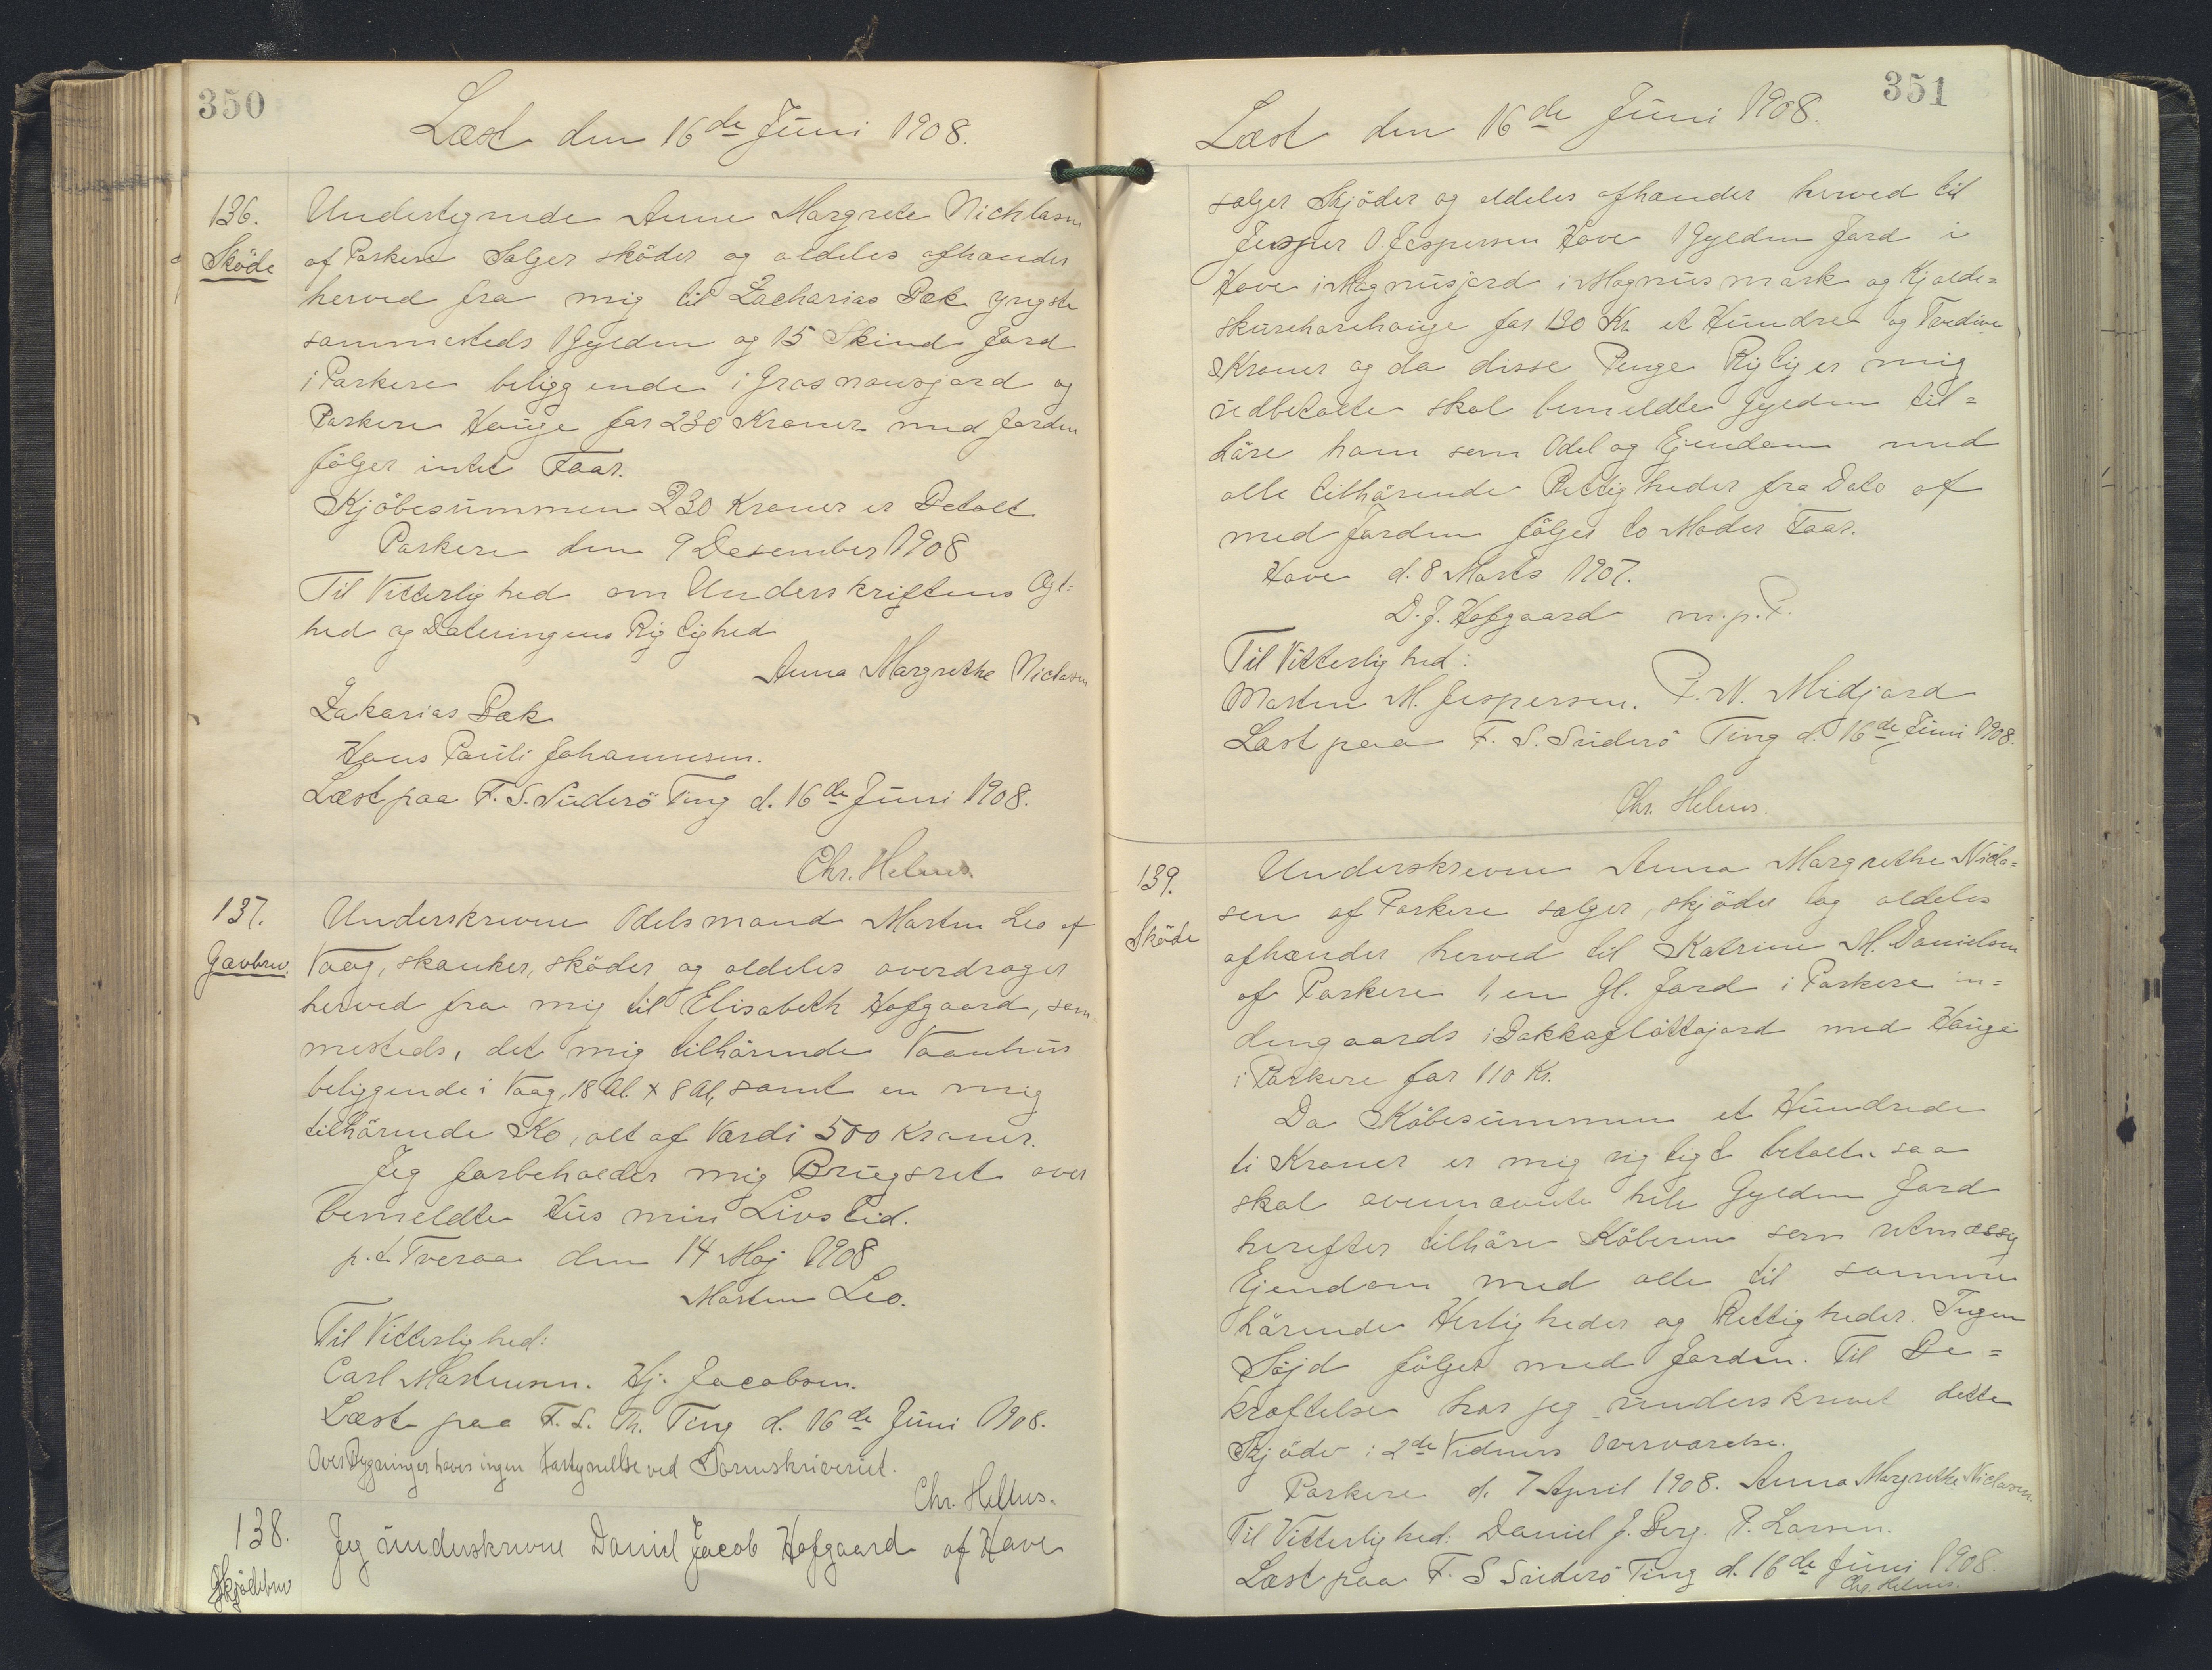 350
Læst den 16de Juni 1908.
136.
Sköde
Undertegnede Anne Margrete Nichlasen
af Porkere Sælger sköder og aldeles afhænder
herved fra mig til Zacharias Bæk yngste
sammesteds 1 Gylden og 15 Skind Jord
i Porkere beliggende i Grasmansjord og
Porkere Hauge for 230 Kroner med Jorden
fölger intet Faar.
Kjöbesummen 230 Kroner er Betalt
Porkere den 9 Desember 1908
Til Vitterlighed om Underskriftens Ægt-
hed og Dateringens Rigtighed
Anna Margrethe Niclasen
Zakarias Bæk
Hans Pauli Johannesen.
Læst paa F. S. Suderö Ting d. 16de Juni 1908.
Chr. Helms.
137.
Gavebrev.
Underskrevne Odelsmand Morten Leo af
Vaag, skænker, sköder og aldeles overdrager
herved fra mig til Elisabeth Hofgaard, sam
mesteds, det mig tilhörende Vaanhus
beliggende i Vaag, 18 Al. x 8 Al, samt en mig
tilhörende Ko, alt af Værdi 500 Kroner.
Jeg forbeholder mig Brugsret over
bemeldte Hus min Livstid.
p.t. Tveraa den 14 Maj 1908
Morten Leo.
Til Vitterlighed:
Carl Mortensen. Hj. Jacobsen.
Læst paa F. S. Th. Ting d. 16de Juni 1908.
Over Bygninger haves ingen Hartegnelse ved Sorenskriveriet.
Chr. Helms.
138.
Skjödebrev
Jeg underskrevne Daniel Jacob Hofgaard af Hove
351
Læst den 16de Juni 1908.
sælger Skjöder og aldeles afhænder herved til
Jesper O. Jespersen Hove 1 Gylden Jord i
Hove i Magnusjord i Magnusmark og Kjalde=
skurehorehauge for 130 Kr. et Hundre og Tredive
Kroner og da disse Penge Rigtig er mig
udbetalte skal bemeldte Gylden til=
höre ham som Odel og Ejendom med
alle tilhörende Rettigheder fra Dato af
med Jorden fölger to Moder Faar.
Hove d. 8 Marts 1907.
D. J. Hofgaard m. p. P.
Til Vitterlighed:
Morten M. Jespersen. P. N. Midjord
Læst paa F. S. Suderö Ting d. 16de Juni 1908.
Chr. Helms.
139.
Sköde
Underskrevne Anna Margrethe Nicla=
sen af Porkere sælger, skjöder og aldeles
afhænder herved til Katrine M. Danielsen
af Porkere 1, en Gl. Jord i Porkere in=
dengaards i Bakkaflöttajord med Hauge
i Porkere for 110 Kr.
Da Köbesummen et Hundrede
ti Kroner er mig rigtigt betalt, saa
skal ovennævnte hele Gylden Jord
herefter tilhöre Köberen som retmæssig
Ejendom med alle til samme
hörende Herligheder og Rettigheder. Ingen
Söjd fölger med Jorden. Til Be=
kræftelse har jeg underskrevet dette
Skjöde i 2de Vidners Overværelse.
Porkere d. 7 April 1908. Anna Margrethe Niclasen.
Til Vitterlighed: Daniel J. Berg. P. Larsen.
Læst paa F. S Suderö Ting d. 16de Juni 1908.
Chr. Helms.